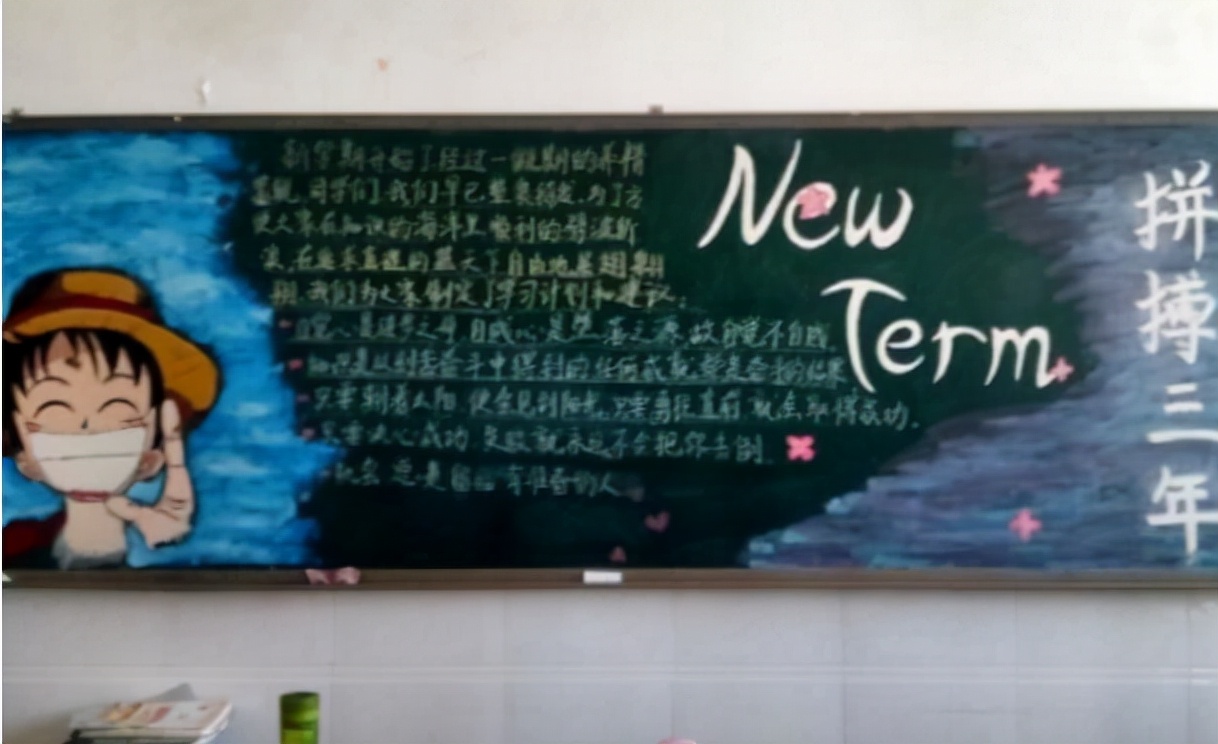 新学期开始了经过一假期的养精
蓄锐,同学们,我们早已整装待发,为了方
便大家在知识的海洋里顺利的劈波斩
浪,在
的蓝天下自由地
翔,我们为大家制定了学习计划和建议:
自觉心是进步之母,自贱心是堕落之源,故自觉不自贱
知识是从刻苦劳动中得到的任何成就都是刻苦的结果
只要朝着太阳,便会见到阳光,只要勇往直前,就会取得成功.
只要决心成功,失败就永远不会把你击倒
机会总是留给有准备的人
New
Term
拼搏三年